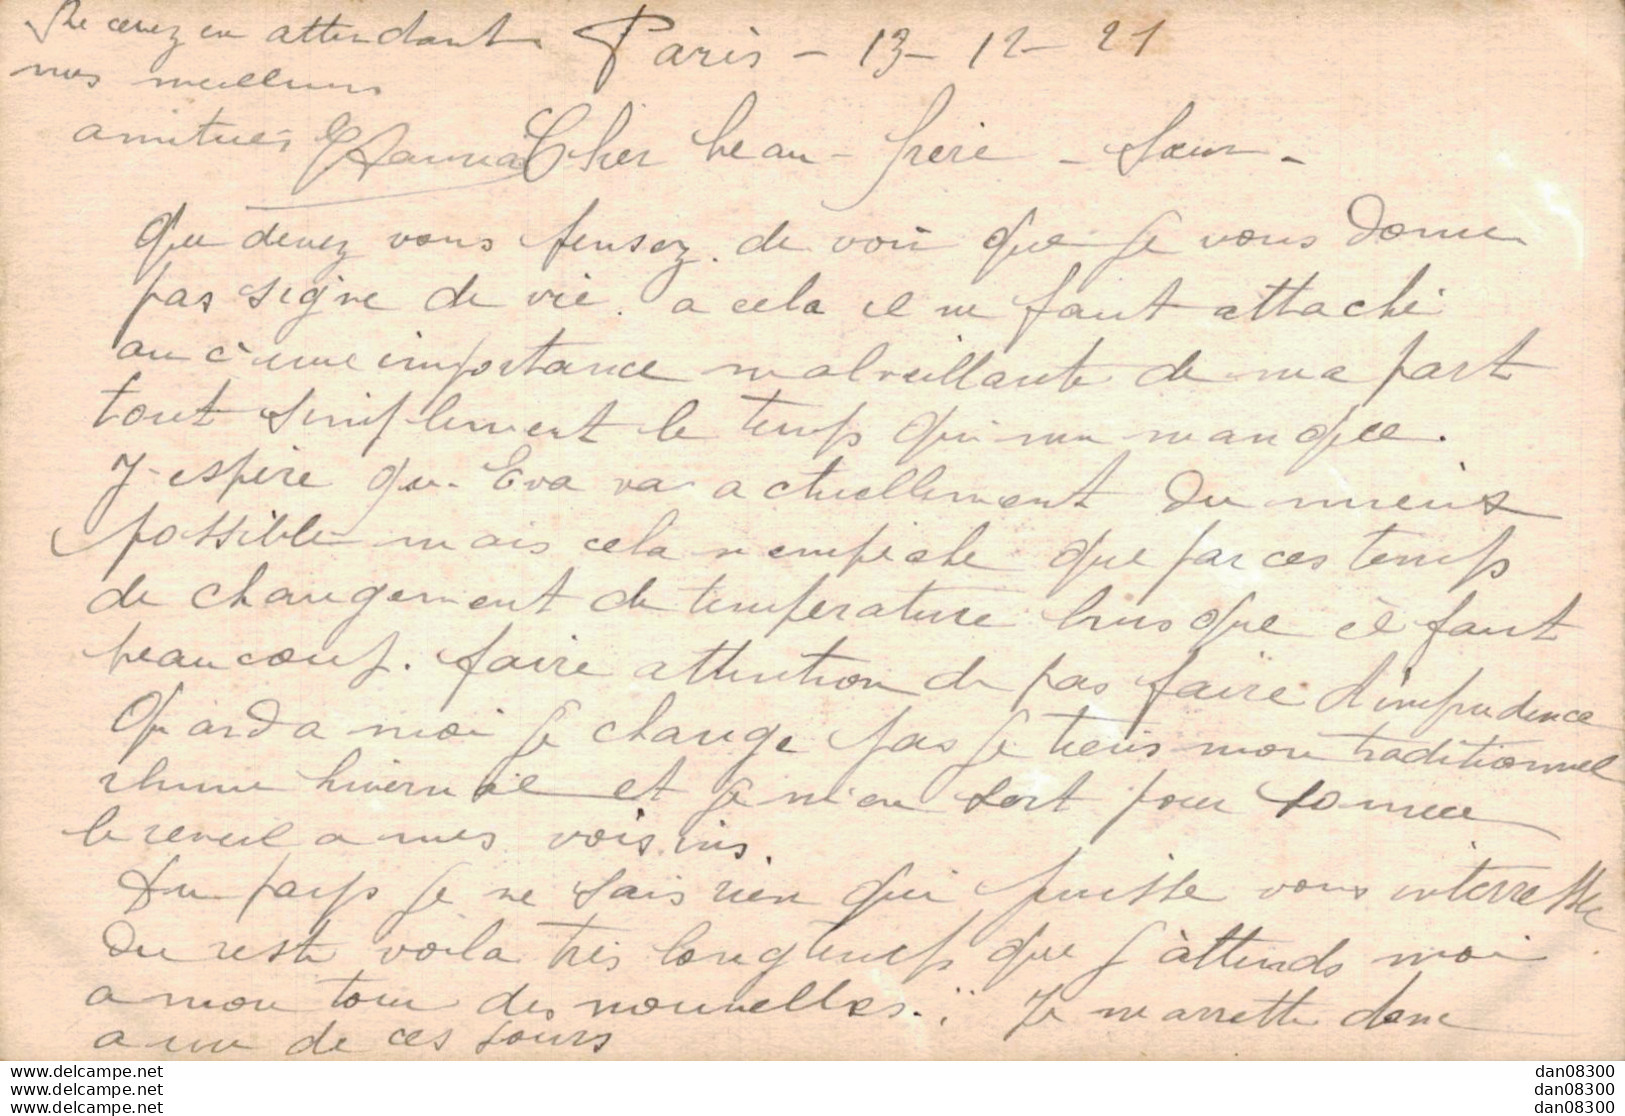 Paris - 13-12-21
Cher beau-frère - Sœur -
Que devez vous pensez de voir que je vous donne
pas signe de vie. a cela il ne faut attaché
aucune importance malveillante de ma part
tout simplement le temps qui me manque.
J'espère que Eva va actuellement du mieux
possible mais cela n'empeche que par ces temps
de changement de température lorsque il faut
beaucoup. faire attention de pas faire d'imprudence
Quand a moi je change pas je tiens mon traditionnel
rhume hivernal et je m'en sert pour sonner
le reveil a mes voisins.
Du pays je ne sais rien qui puisse vous interresser
du reste voila très longtemps que j'attends moi
a mon tour des nouvelles... Je m'arrette donc
a un de ces jours
Recevez en attendant
mes meilleurs
amitiés
www.delcampe.net
www.delcampe.net
www.delcampe.net
dan08300
dan08300
dan08300